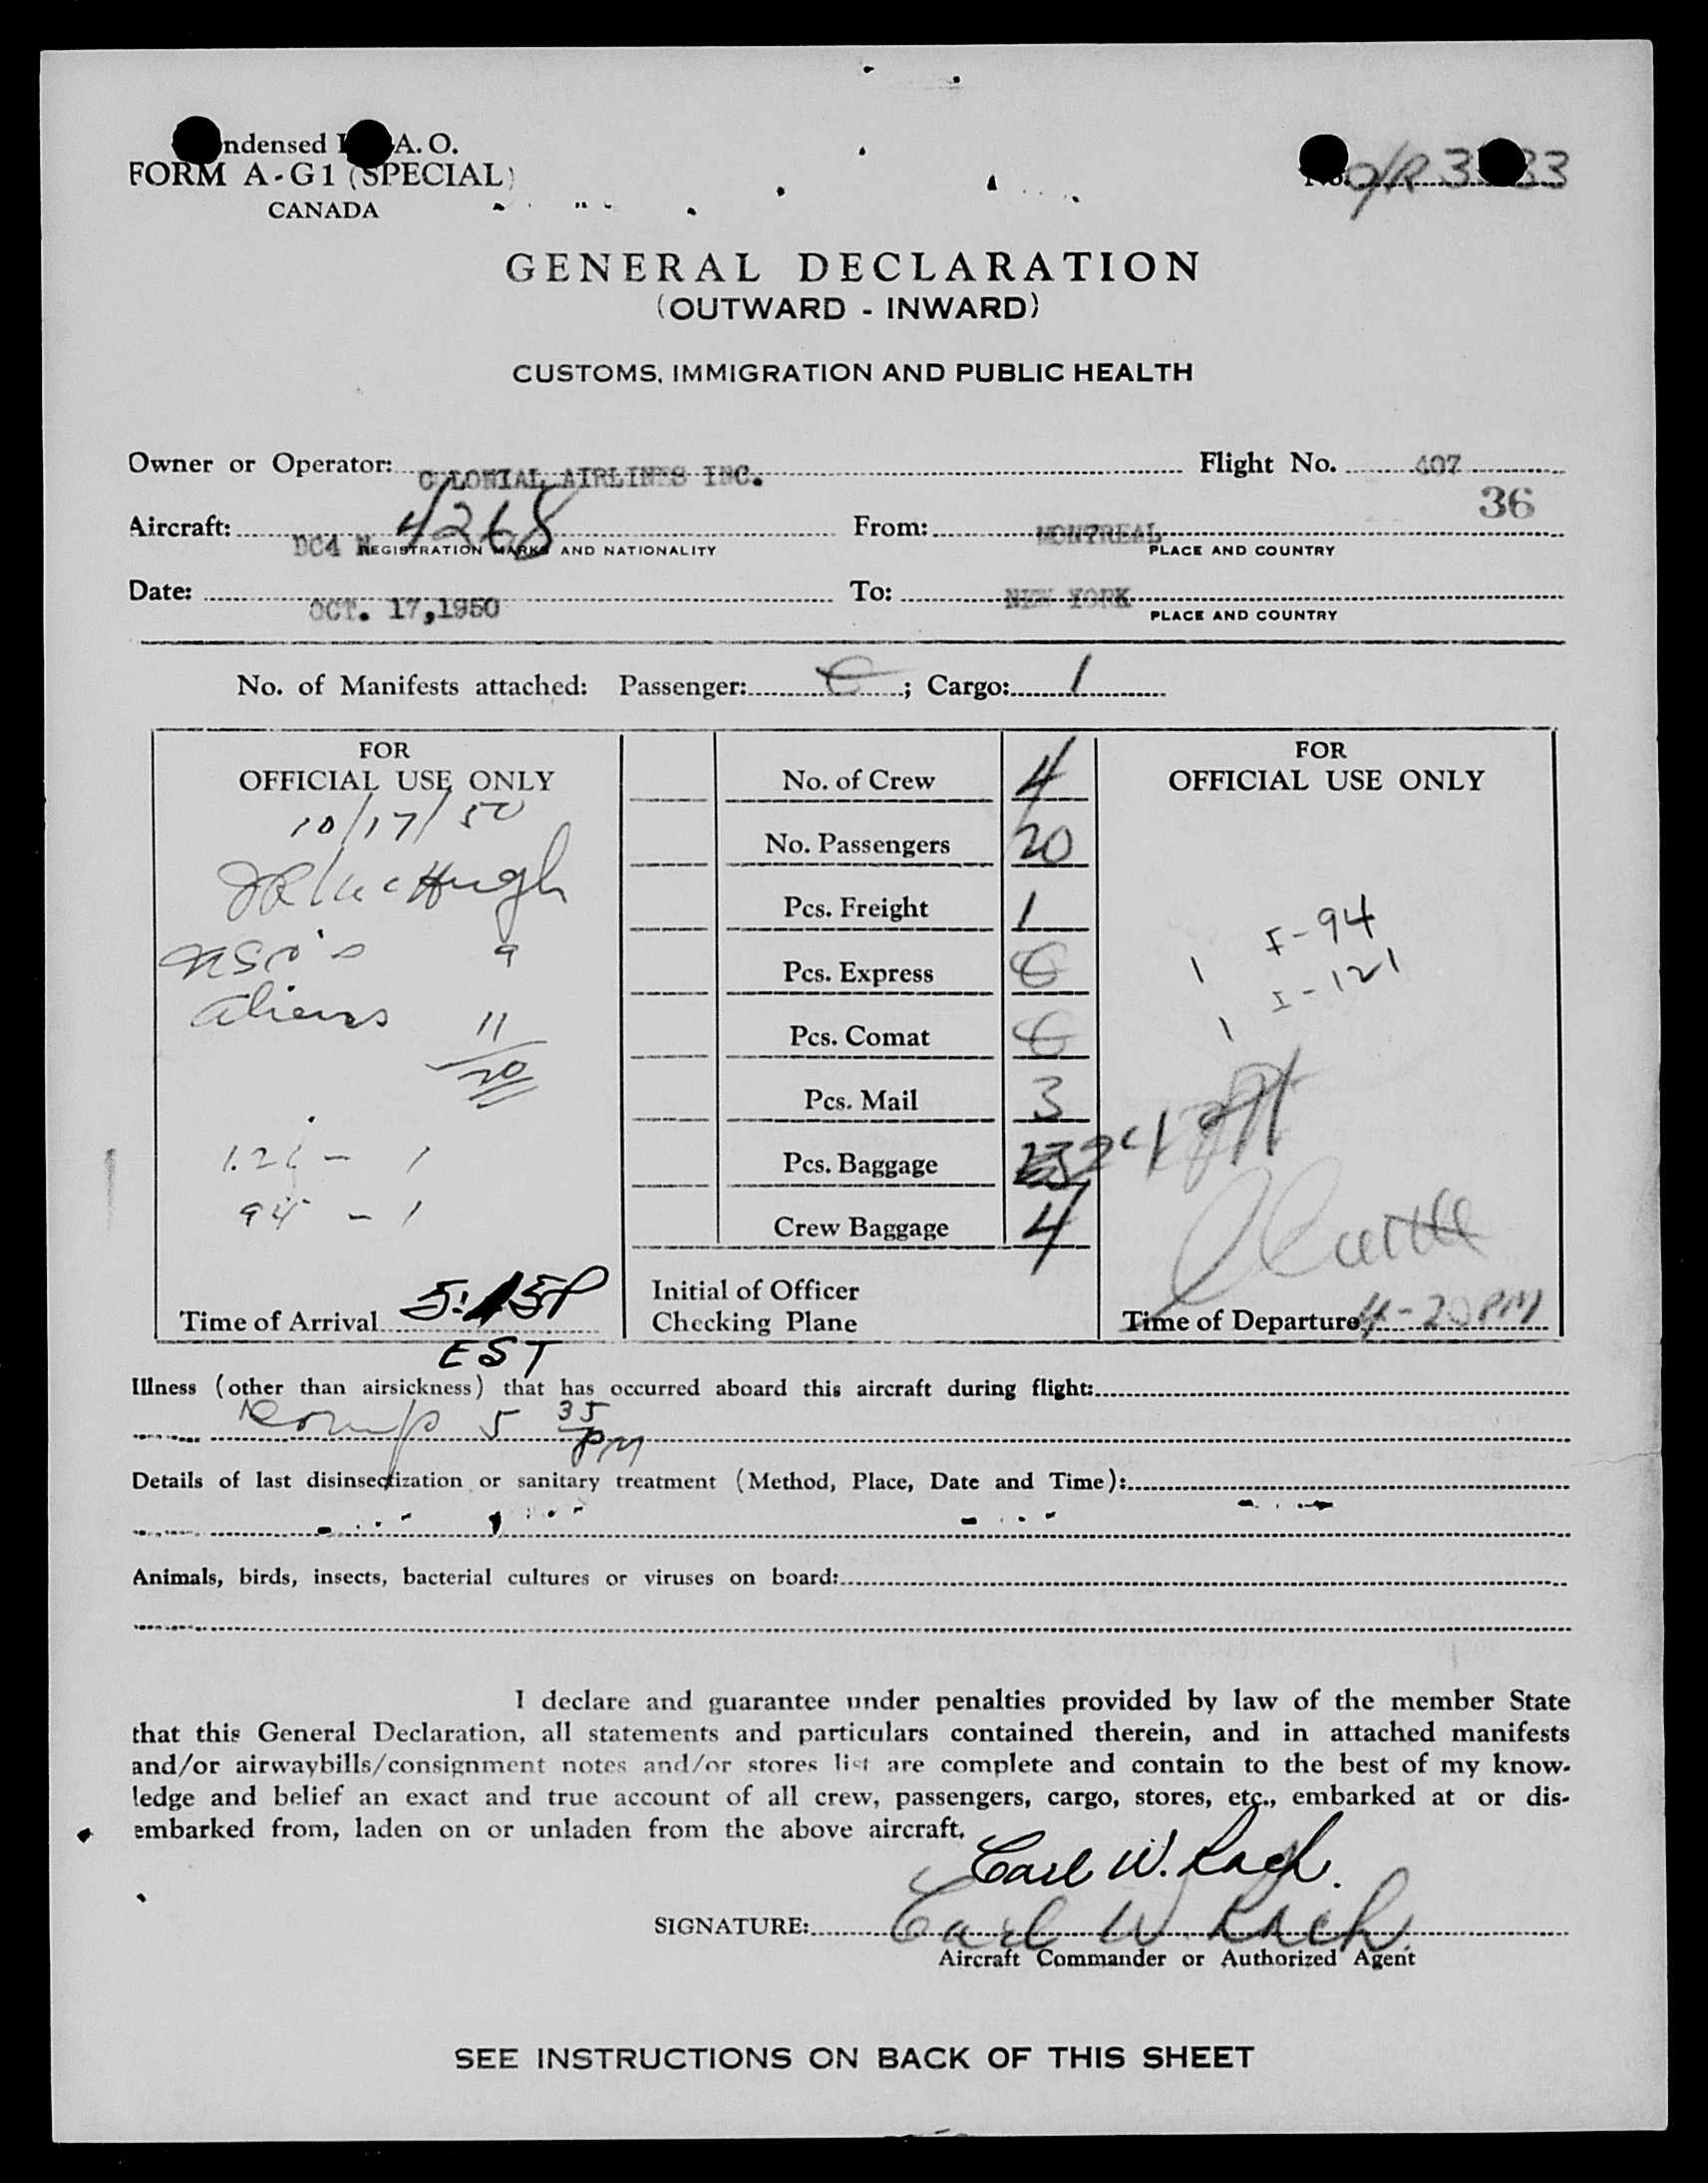 ndensed I A. O.
FORM A-G1 (SPECIAL)
CANADA
No. O/R 3 33
GENERAL DECLARATION
(OUTWARD - INWARD)
CUSTOMS, IMMIGRATION AND PUBLIC HEALTH
Owner or Operator: COLONIAL AIRLINES INC. Flight No. 407
36
Aircraft: DC4 N 4268 From: MONTREAL
REGISTRATION MARKS AND NATIONALITY PLACE AND COUNTRY
Date: OCT. 17,1950 To: NEW YORK
PLACE AND COUNTRY
No. of Manifests attached: Passenger: ; Cargo: 1
FOR
OFFICIAL USE ONLY
10/17/50
JR McHugh
9
aliens 11
20
1.21 - 1
94 - 1
Time of Arrival 5:15P
EST
No. of Crew 4
No. Passengers 20
Pcs. Freight 1
Pcs. Express
Pcs. Comat
Pcs. Mail 3
Pcs. Baggage 24
Crew Baggage 4
Initial of Officer
Checking Plane
FOR
OFFICIAL USE ONLY
1 I-94
1 I-121
Time of Departure 4-20 PM
Illness (other than airsickness) that has occurred aboard this aircraft during flight:
Comp 5 35 PM
Details of last disinsectization or sanitary treatment (Method, Place, Date and Time):
Animals, birds, insects, bacterial cultures or viruses on board:
I declare and guarantee under penalties provided by law of the member State
that this General Declaration, all statements and particulars contained therein, and in attached manifests
and/or airwaybills/consignment notes and/or stores list are complete and contain to the best of my know-
ledge and belief an exact and true account of all crew, passengers, cargo, stores, etc., embarked at or dis-
embarked from, laden on or unladen from the above aircraft.
Carl W. Rach.
SIGNATURE: Carl W. Rach.
Aircraft Commander or Authorized Agent
SEE INSTRUCTIONS ON BACK OF THIS SHEET